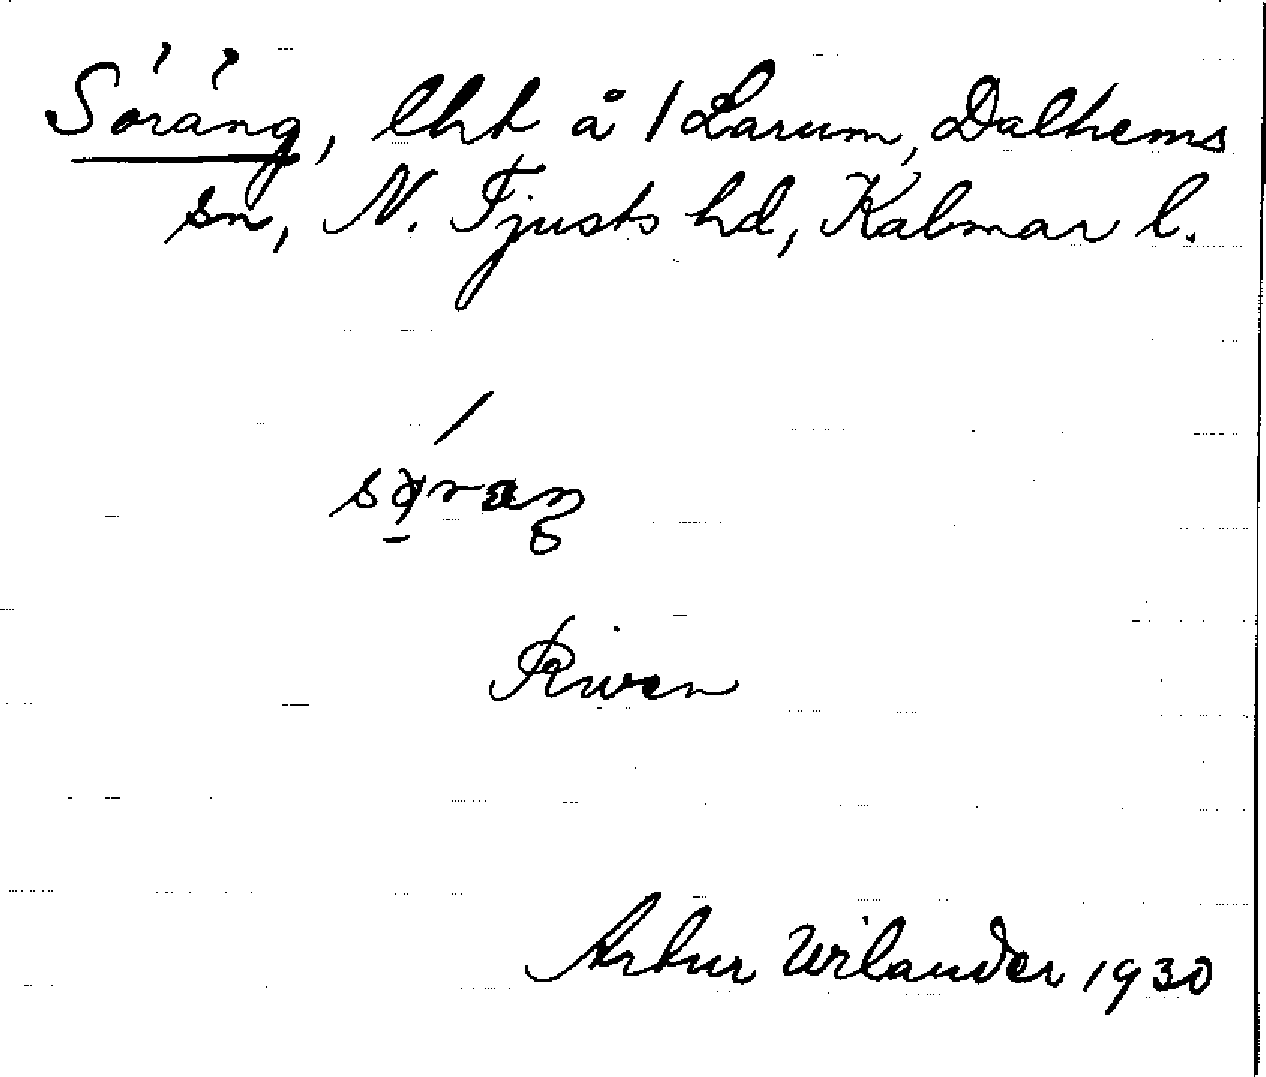 Söräng, lht å / Larum, Dalhems
sn, N. Tjusts hd, Kalmar l.
Riven
Artur Wilander 1930